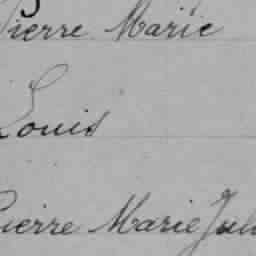 Pierre Marie
Louis
Pierre Marie